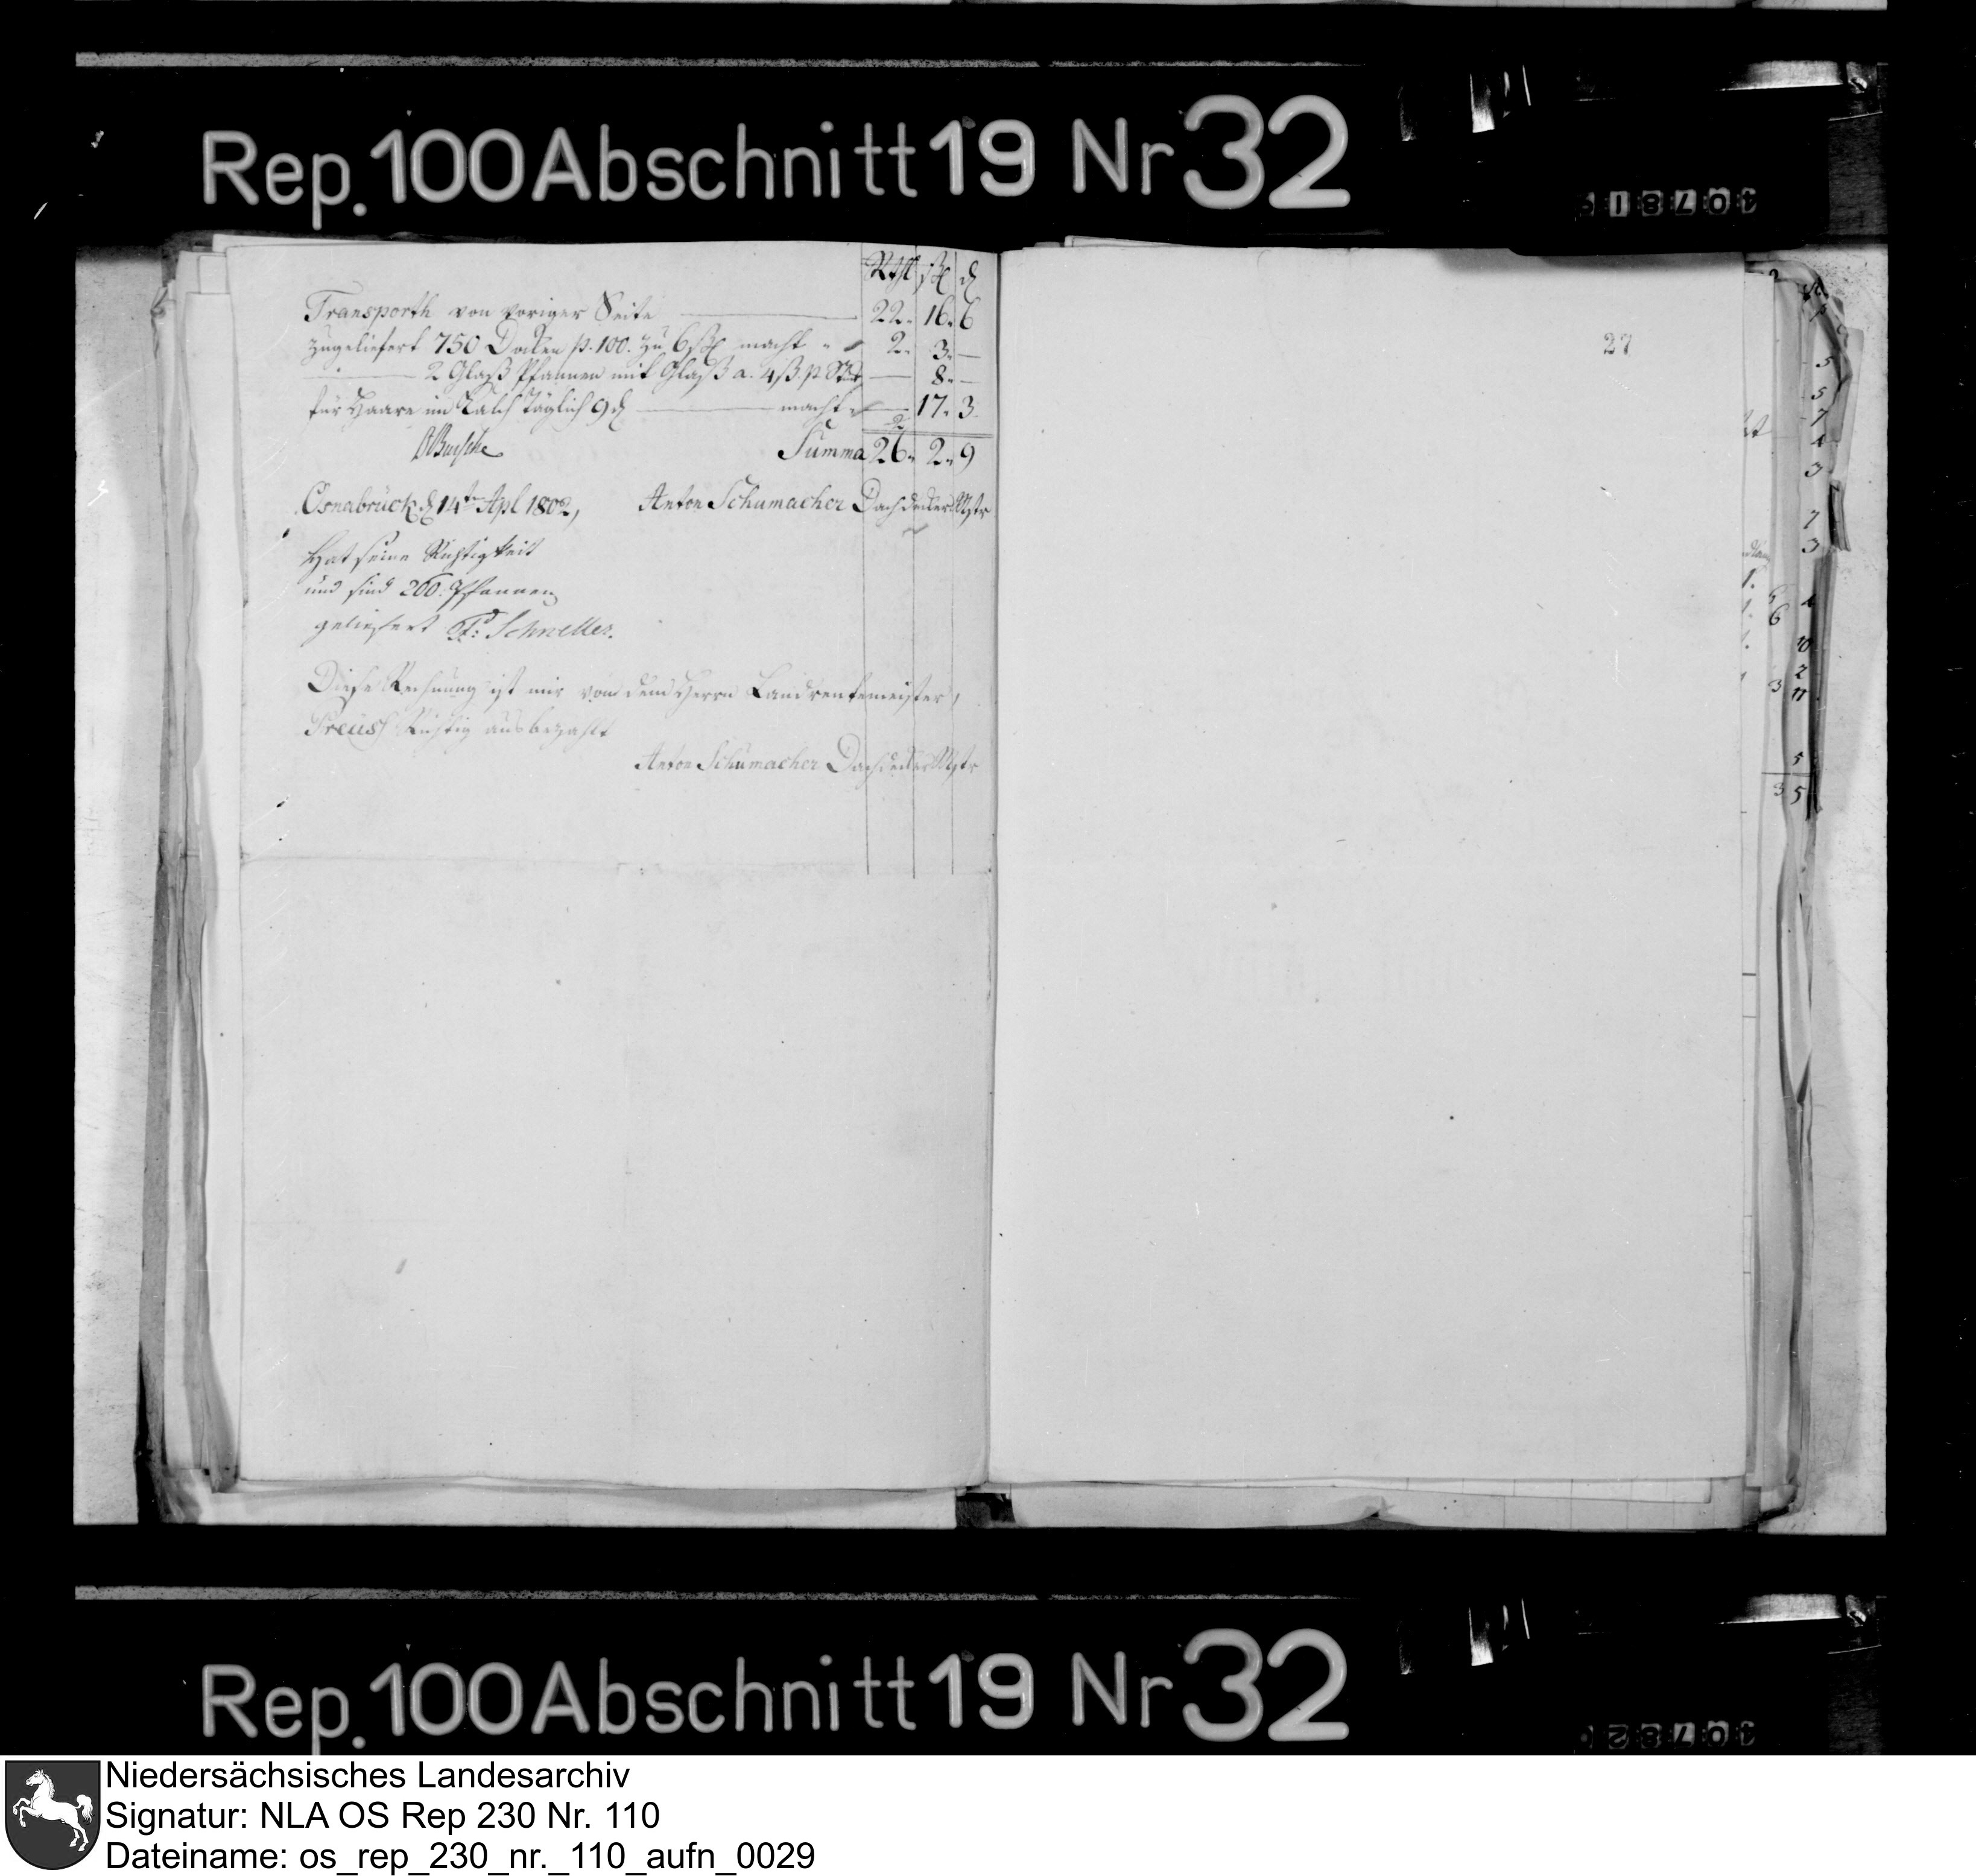 Rep. 100 Abschnitt 19 Nr 32
Rthl ßl d
Transporth von voriger Seite 22. 16. 6
zugeliefert 750 Docken p. 100. zu 6 ßl macht 2. 3. —
2 Glaß Pfannen mit Glaß a. 4 ß. p Stk — 8. —
für Haare im Kalch täglich 9 d macht — 17. 3
Summa 26. 2. 9
Osnabrück d 14te Apl 1802, Anton Schumacher Dachdecker Mstr
Hat seine Richtigkeit
und sind 200. Pfannen
geliefert Schweller.
Diese Rechnung ist mir von dem Herrn Landrentemeister,
Preuss Richtig ausbezahlt
Anton Schumacher Dachdecker Mstr
27
Rep. 100 Abschnitt 19 Nr 32
Niedersächsisches Landesarchiv
Signatur: NLA OS Rep 230 Nr. 110
Dateiname: os_rep_230_nr._110_aufn_0029